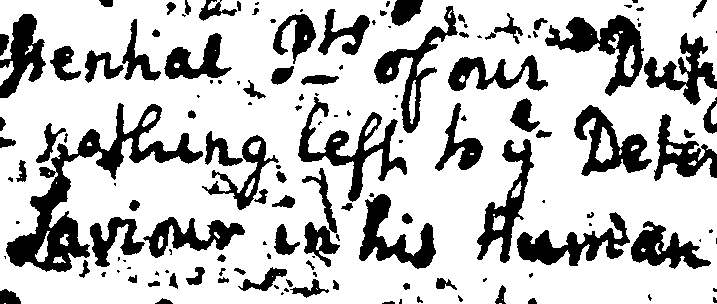 ssential Pts of our Duty
nothing left to ye Deter
Saviour in his Human